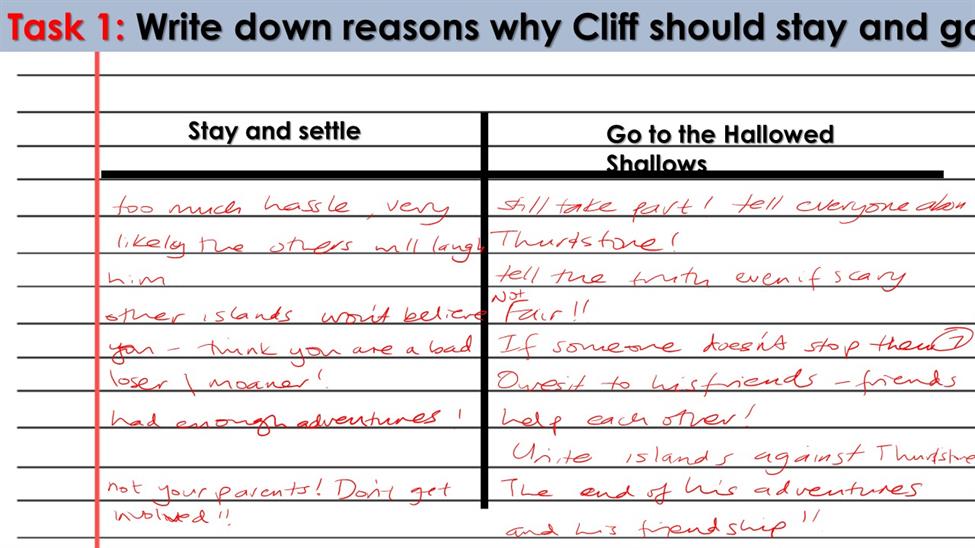 Task 1: Write down reasons why Cliff should stay and go
Stay and settle
too much hassle, very
likely the others will laugh
him
other islands won't believe
you - think you are a bad
loser \ moaner!
had enough adventures!
not your parents! Don't get
involved!!
Go to the Hallowed
Shallows
still take part! tell everyone
Thurdstone!
tell the truth even if scary
Not
Fair!!
If someone doesn't stop them
Owes it to his friends - friends
help each other!
Unite islands against Thurdstone
The end of his adventures
and his friendship!!